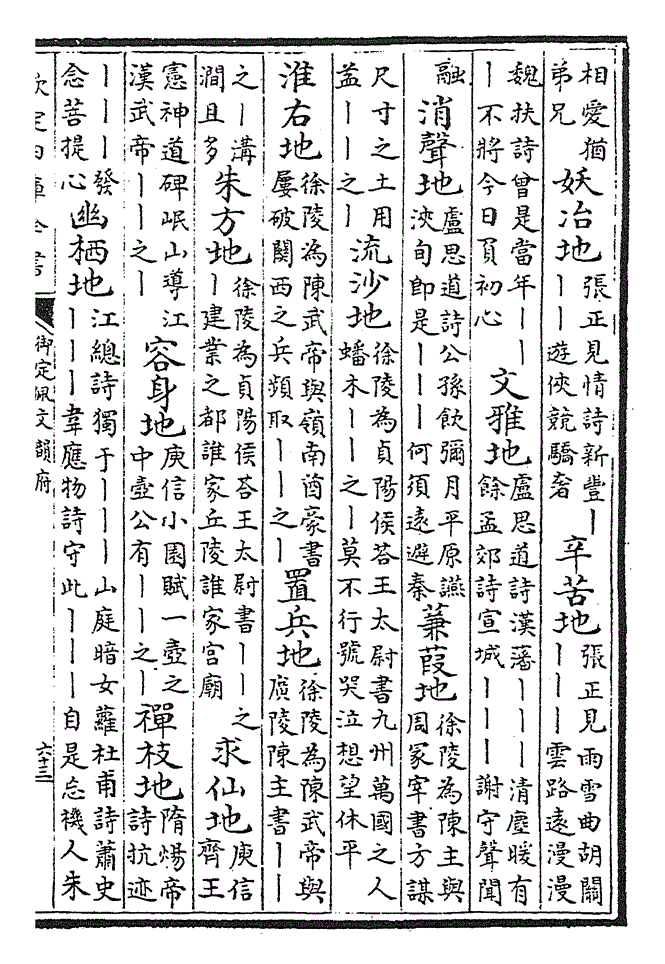 相愛猶弟兄 妖冶地 張正見情詩新豐丨丨丨遊俠競驕奢 辛苦地 張正見雨雪曲胡關丨丨丨雲路遠漫漫
魏扶詩曾是當年丨丨丨不將今日負初心 文雅地 盧思道詩漢藩丨丨丨清塵暖有餘孟郊詩宣城丨丨丨謝守聲聞
融 消聲地 盧思道詩公孫飲彌月平原讌浹旬即是丨丨丨何須遠避秦 蒹葭地 徐陵為陳主與周冢宰書方謀
尺寸之土用益丨丨之丨 流沙地 徐陵為貞陽侯荅王太尉書九州萬國之人蟠木丨丨之丨莫不行號哭泣想望休平
淮右地 徐陵為陳武帝與嶺南酋豪書屢破關西之兵頻取丨丨之丨 置兵地 徐陵為陳武帝與廣陵陳主書丨丨
之丨溝澗且多 朱方地 徐陵為貞陽侯荅王太尉書丨丨之丨建業之都誰家丘陵誰家宮廟 求仙地 庾信齊王
憲神道碑岷山導江漢武帝丨丨之丨 容身地 庾信小園賦一壺之中壺公有丨丨之丨 禪枝地 隋煬帝詩抗迹
丨丨丨發念菩提心 幽栖地 江總詩獨于丨丨丨山庭暗女蘿杜甫詩蕭史丨丨丨韋應物詩守此丨丨丨自是忘機人朱
欽定四庫全書 御定佩文韻府 六十三